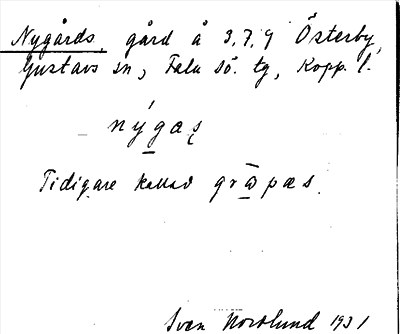 Nygårds, gård å 3,7,9 Österby,
Gustavs sn, Falu sö. tg, Kopp. l.
nýgaş
Tidigare kallad grāpæs.
Sven Norlund 1931